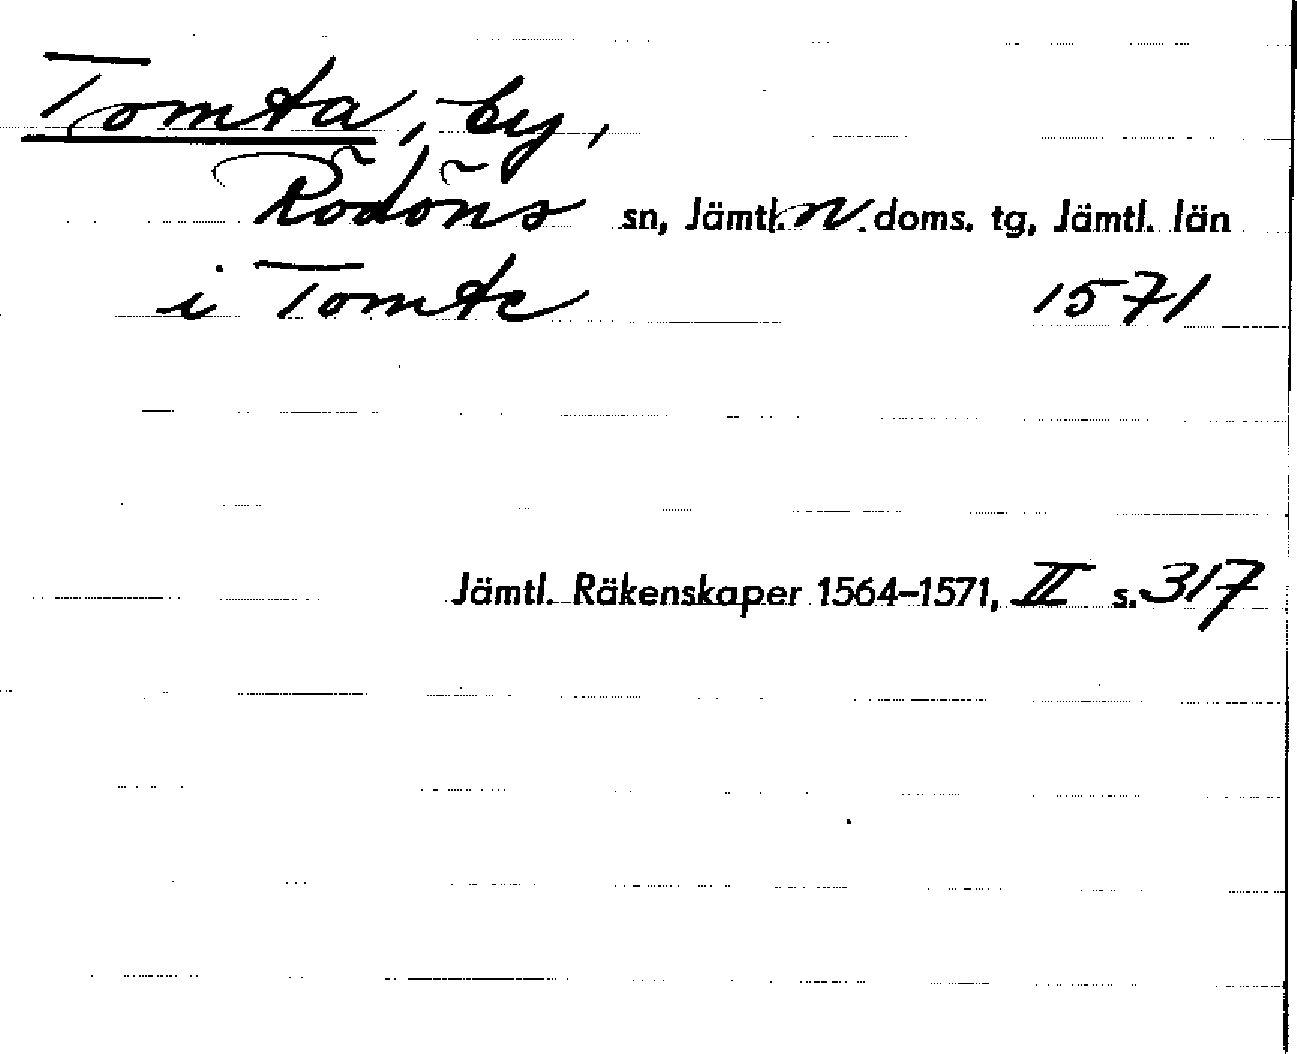 Tomta, by,
Rödöns sn, Jämtl. N. doms. tg, Jämtl. län
i Tomte 1571
Jämtl. Räkenskaper 1564–1571, II s. 317